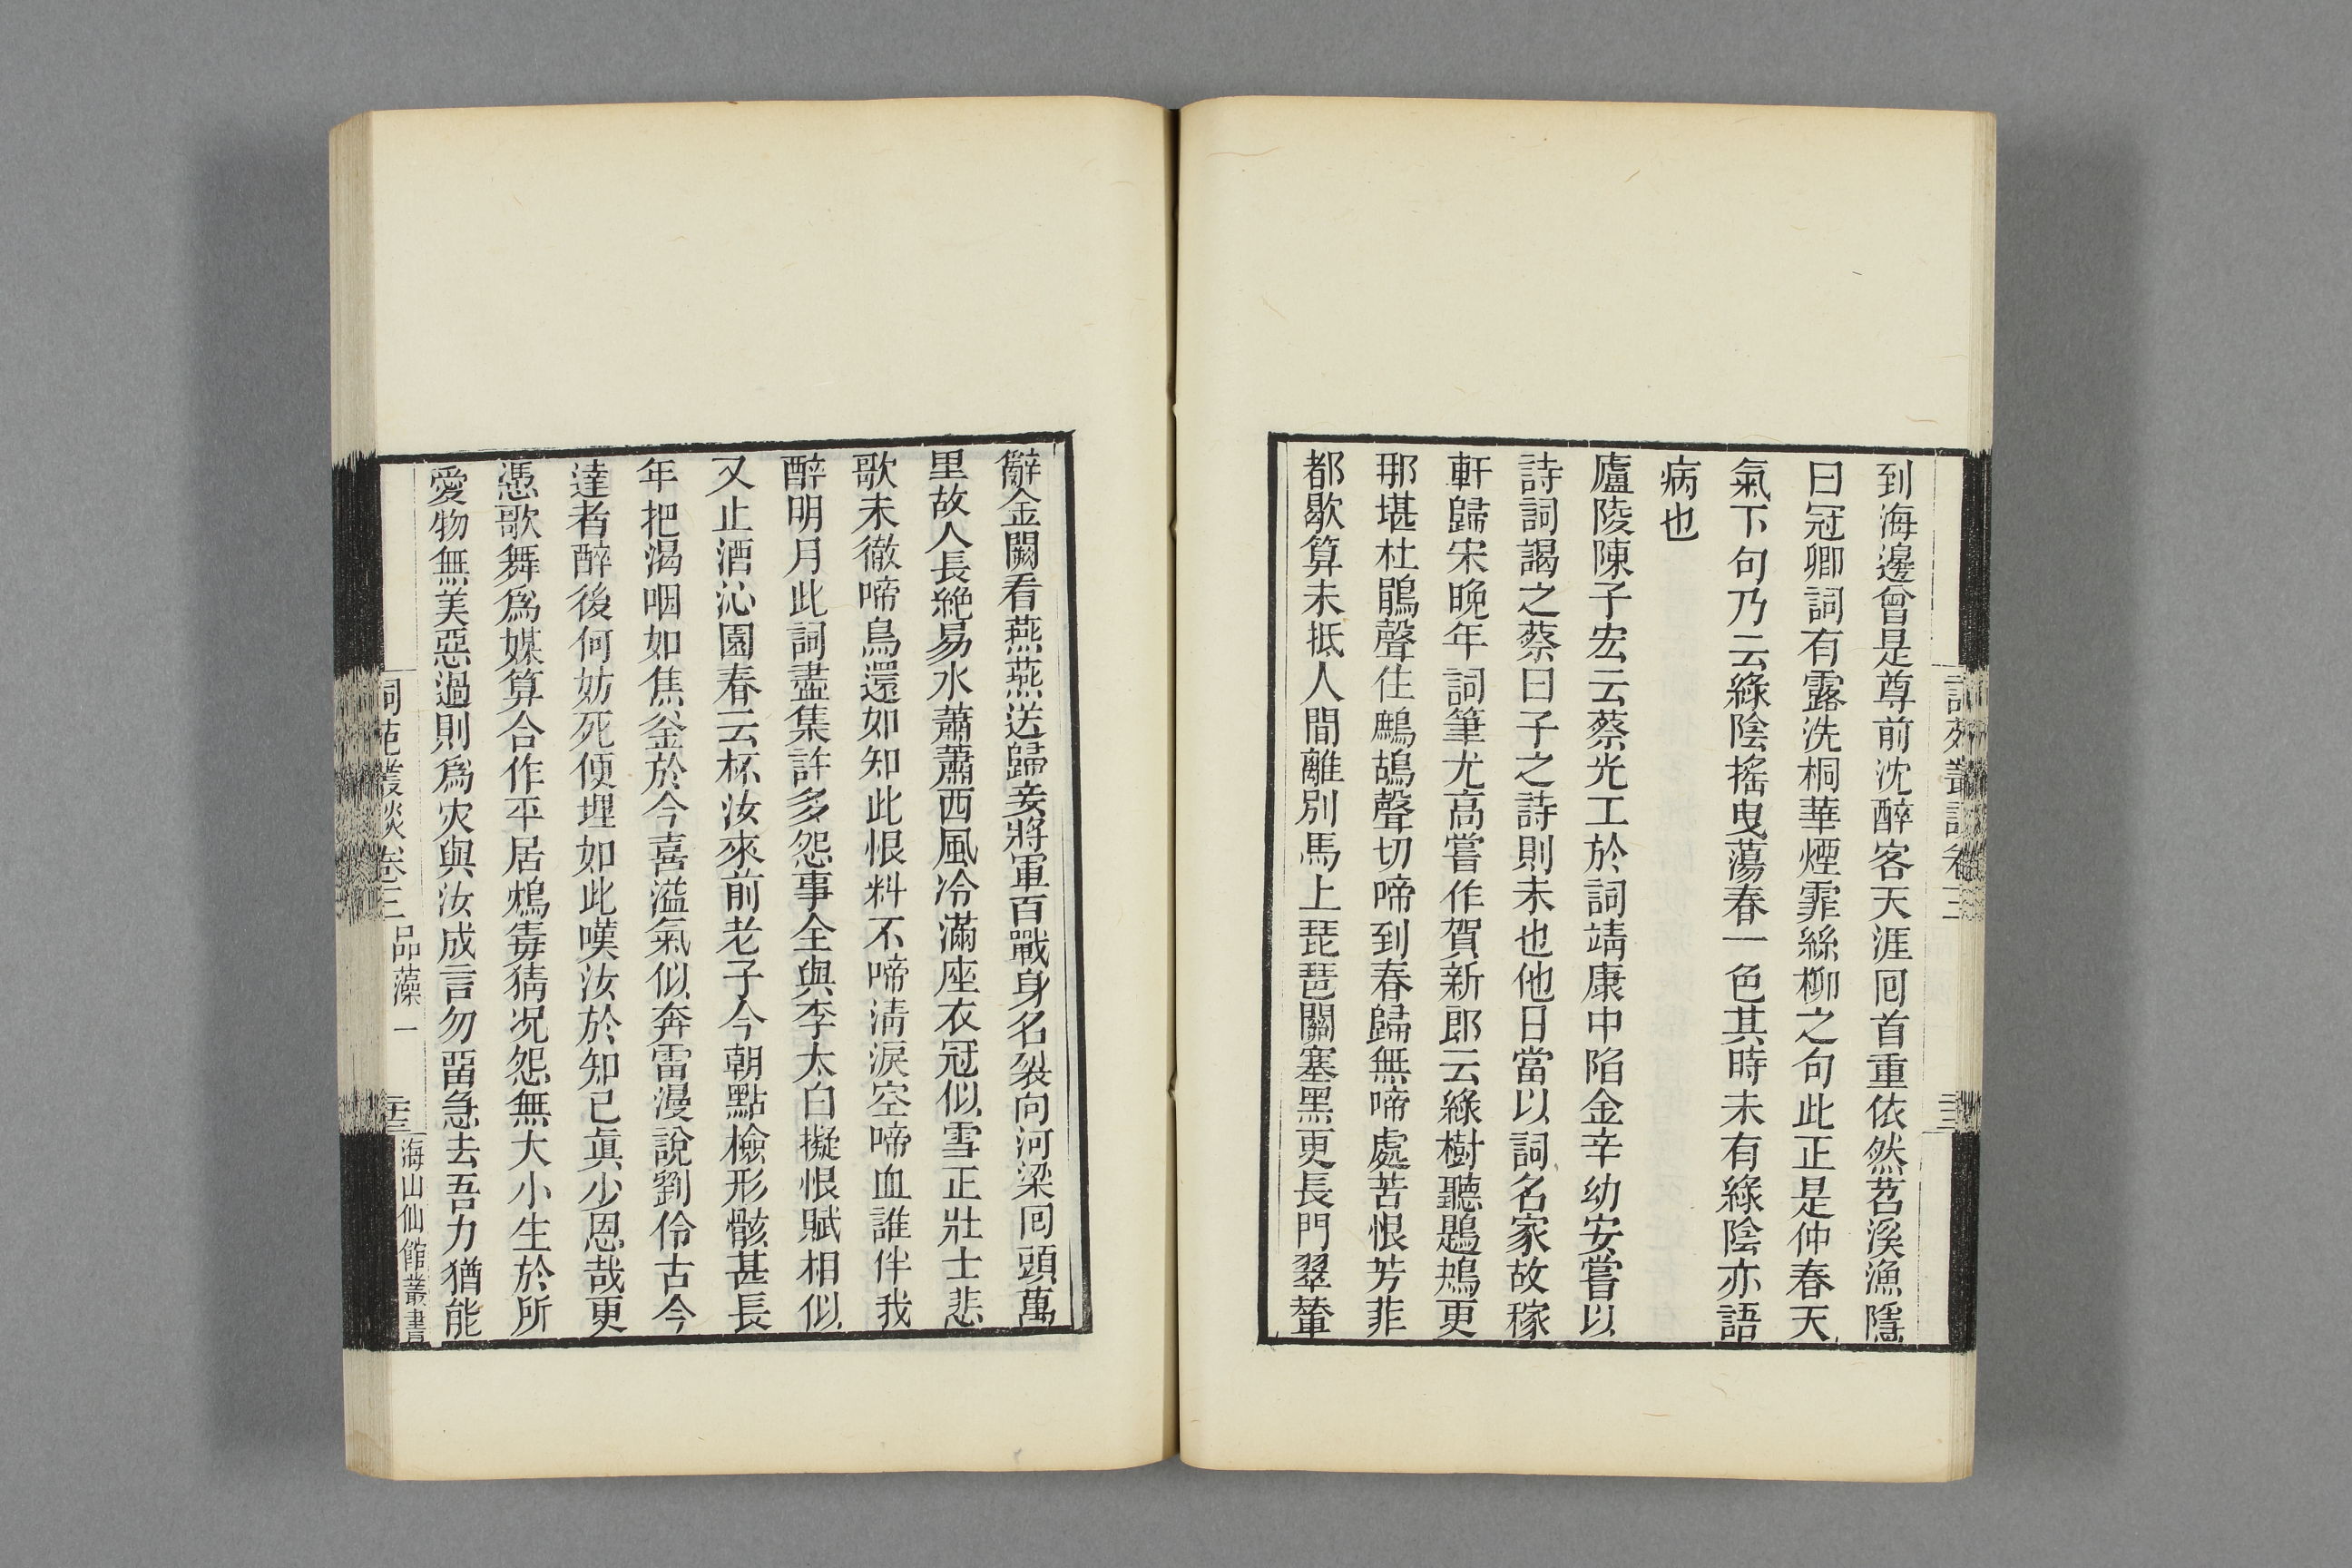 到海邊曾是尊前沈醉客天涯囘首重依然苕溪漁隱
曰冠卿詞有露洗桐華煙霏絲柳之句此正是仲春天
氣下句乃云綠陰搖曳蕩春一色其時未有綠陰亦語
病也
廬陵陳子宏云蔡光工於詞靖康中陷金辛幼安嘗以
詩詞謁之蔡曰子之詩則未也他日當以詞名家故稼
軒歸宋晚年詞筆尤高嘗作賀新郎云綠樹聽鶗鴂更
那堪杜鵑聲住鷓鴣聲切啼到春歸無啼處苦恨芳菲
都歇算未抵人間離別馬上琵琶關塞黑更長門翠輦
辭金闕看燕燕送歸妾將軍百戰身名裂向河梁囘頭萬
里故人長絶易水蕭蕭西風冷滿座衣冠似雪正壯士悲
歌未徹啼鳥還如知此恨料不啼淸淚空啼血誰伴我
醉明月此詞盡集許多怨事全與李太白擬恨賦相似
又止酒沁園春云杯汝來前老子今朝點檢形骸甚長
年把渴咽如焦釜於今喜溢氣似奔雷漫說劉伶古今
達者醉後何妨死便埋如此嘆汝於知己眞少恩哉更
憑歌舞爲媒算合作平居鴆毒猜况怨無大小生於所
愛物無美惡過則爲灾與汝成言勿畱急去吾力猶能
詞苑叢談卷三 品藻一 三三 海山仙館叢書